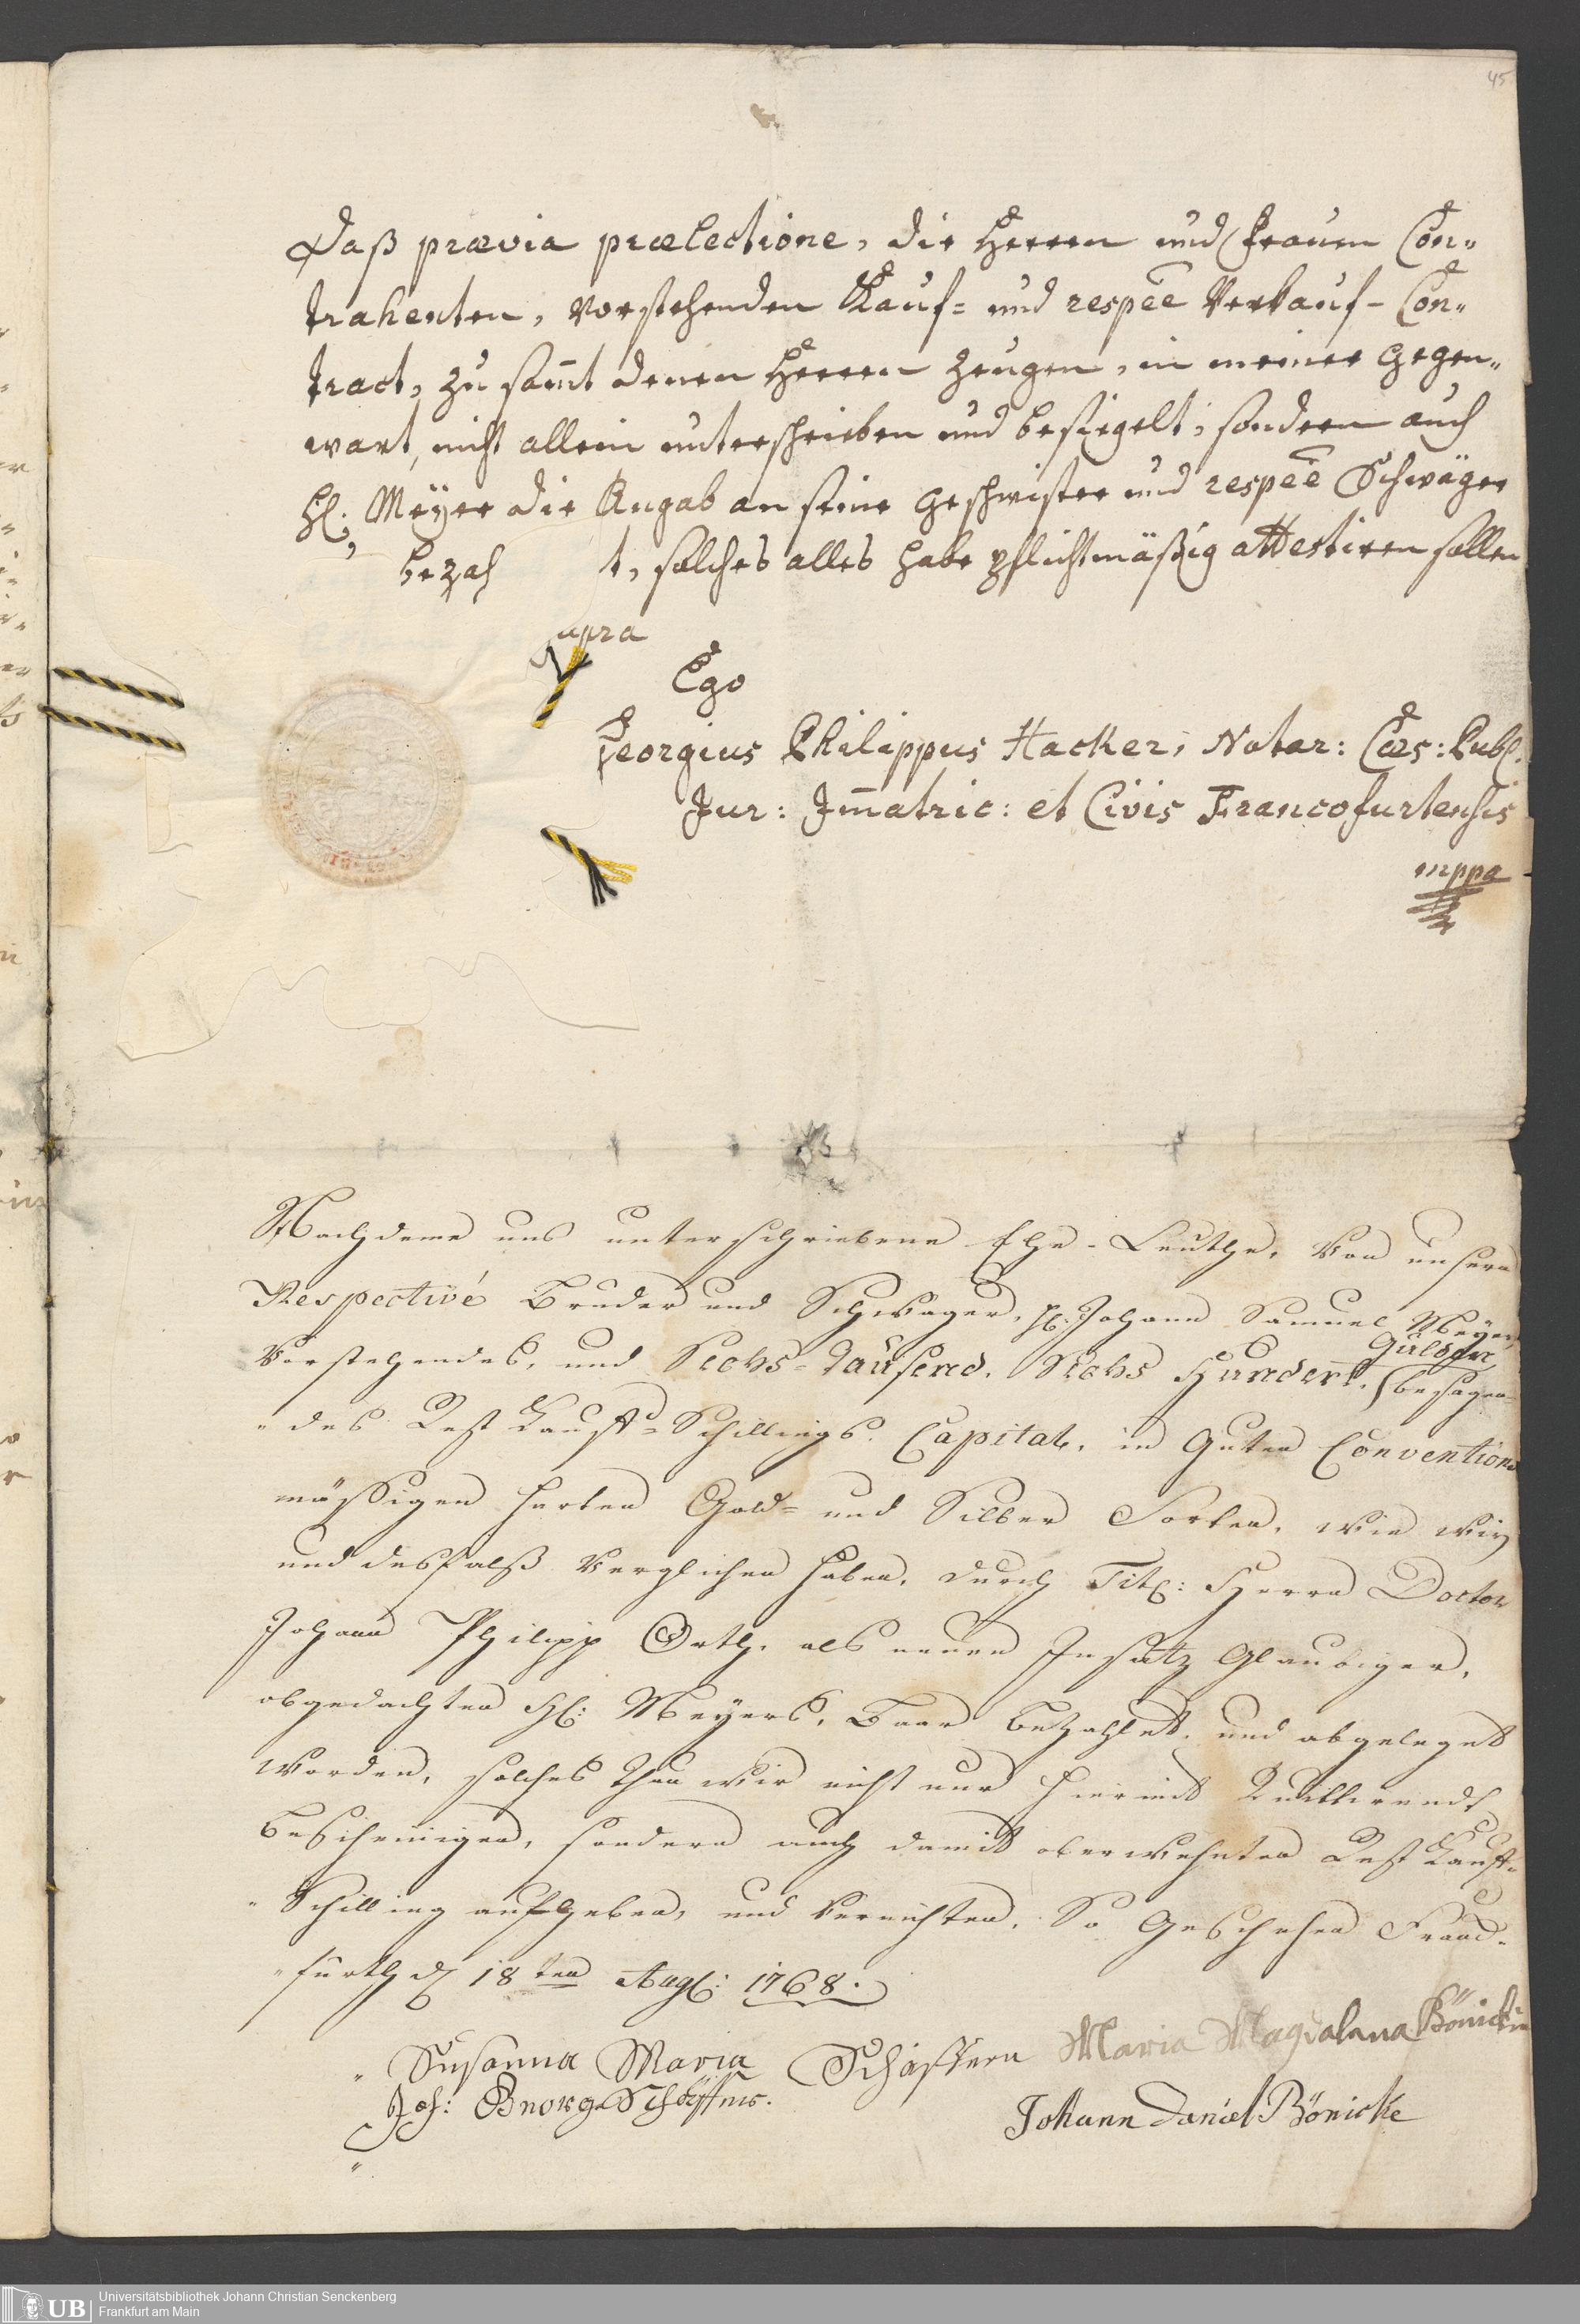 45
Daß prævia prælectione, die Herren und Frauen Con„
trahenten, vorstehenden Kauf= und respēe Verkauf- Con„
tract, zu sam̄t denen Herren Zeugen, in meiner Gegen„
wart, nicht allein unterschrieben und besiegelt, sondern auch
H: Meÿer die Angab an seine Geschwister und respēe Schwäger
bezah t, solches alles habe pflichtmäßig attestiren sollen
upra
Ego
Georgius Philippus Hacker, Notar: Cæs: Publ:
Jur: Im̄atric: et Civis Francofurtensis
mppa
Nachdeme uns unterschriebene Ehe-Leuthe, von unsern
Respectivé Bruder und Schwager, H: Johann Samuel Meÿer,
Gulden
Vorstehendes, und Sechs=Tausend, Sechs Hundert, besagen„
„des Rest Kauff=Schillings Capital, in Guten Conventions
mässigen harten Gold= und Silber Sorten, wie wir
uns desfalß verglichen haben, durch Tit: Herrn Doctor
Johann Philipp Orth, als neuen Insatz Glaubiger,
obgedachten H: Meÿers, Baar bezahlet, und abgeleget
worden, solches thun wir nicht nur hiermit Quittirendt
bescheinigen, sondern auch damit oberwehnten Rest Kauff„
„Schilling aufheben, und vernichten. So Geschehen Franck„
„furth d 18ten Aug: 1768.
Susanna Maria Schäffern Maria Magdalena Bönickin
Joh: Georg Schäffer.
Johann Daniel Bönicke
UB Universitätsbibliothek Johann Christian Senckenberg
Frankfurt am Main